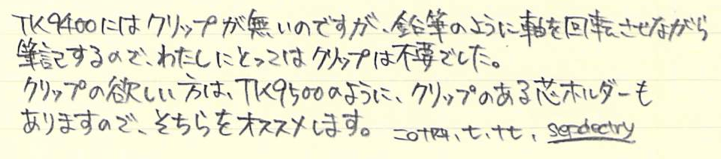 TK9400にはクリップが無いのですが、鉛筆のように軸を回転させながら
筆記するので、わたしにとってはクリップは不要でした。
クリップの欲しい方は、TK9500のように、クリップのある芯ホルダーも
ありますので、そちらをオススメします。